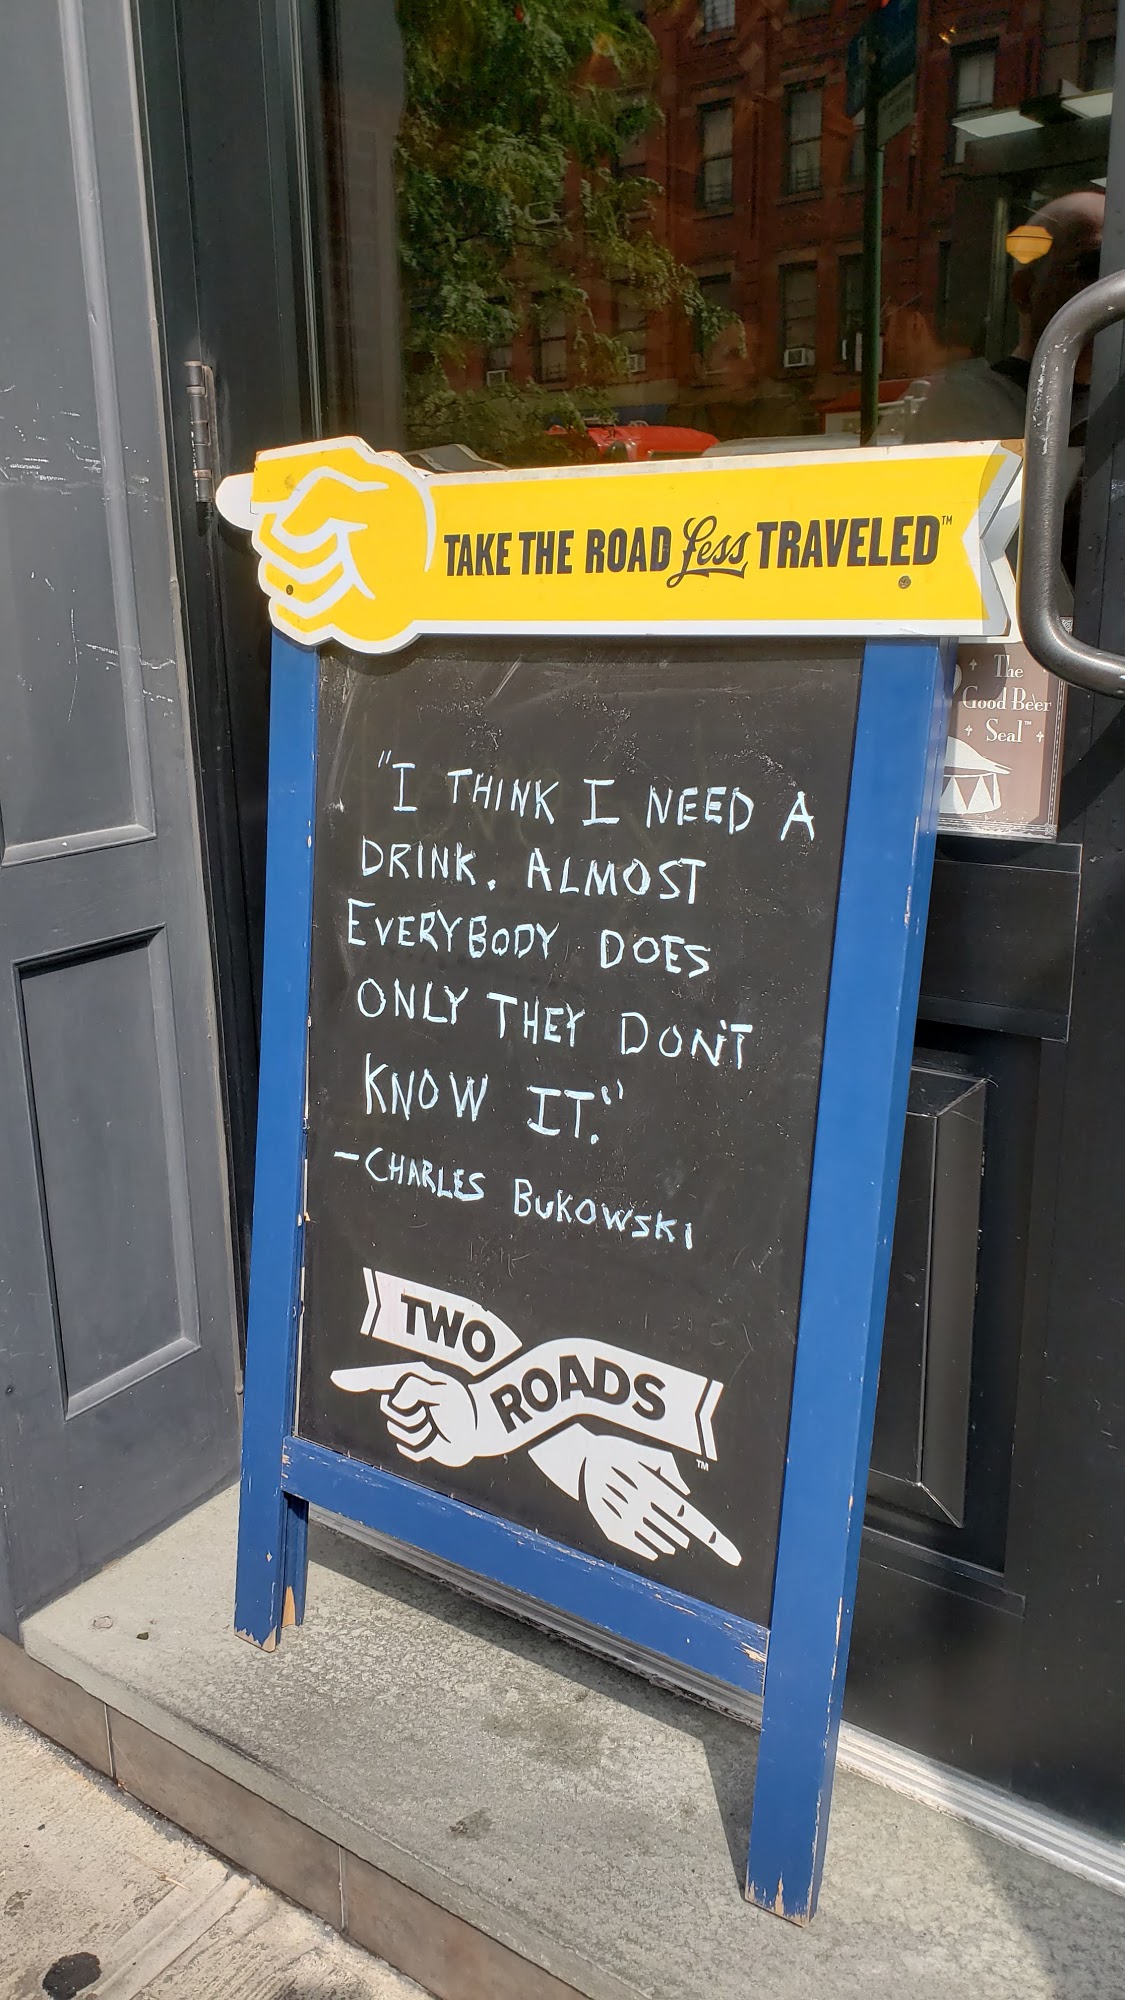 TAKE THE ROAD Less TRAVELED™
The
Good Beer
Seal™
"I THINK I NEED A
DRINK. ALMOST
EVERYBODY DOES
ONLY THEY DON'T
KNOW IT."
-CHARLES BUKOWSKI
TWO
ROADS™